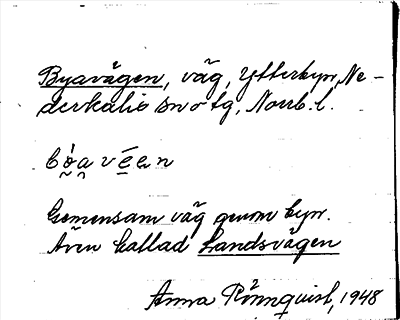 Byavägen, väg, Ytterbyn, Ne-
derkalix sn o tg, Norrb. l.
bo̯a̯véen
Gemensam väg genom byn.
Även kallad Landsvägen
Anna Rönnquist, 1948